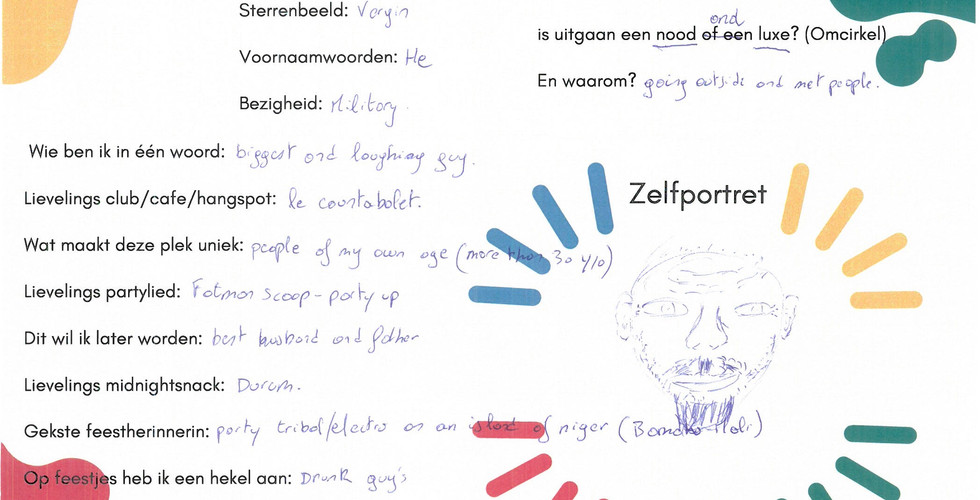 Sterrenbeeld: Vergin
Voornaamwoorden: He
Bezigheid: Military.
Wie ben ik in één woord: biggest and laughing guy.
Lievelings club/cafe/hangspot: le
Wat maakt deze plek uniek: people of my own age (more than 30 y/o)
Lievelings partylied: Fatman Scoop - party up
Dit wil ik later worden: best husband and father
Lievelings midnightsnack: Durum.
Gekste feestherinnerin: party tribal/electro on an island of niger (Bamako-Mali)
Op feestjes heb ik een hekel aan: Drunk guy's
and
is uitgaan een nood of een luxe? (Omcirkel)
En waarom? going outside and met people.
Zelfportret